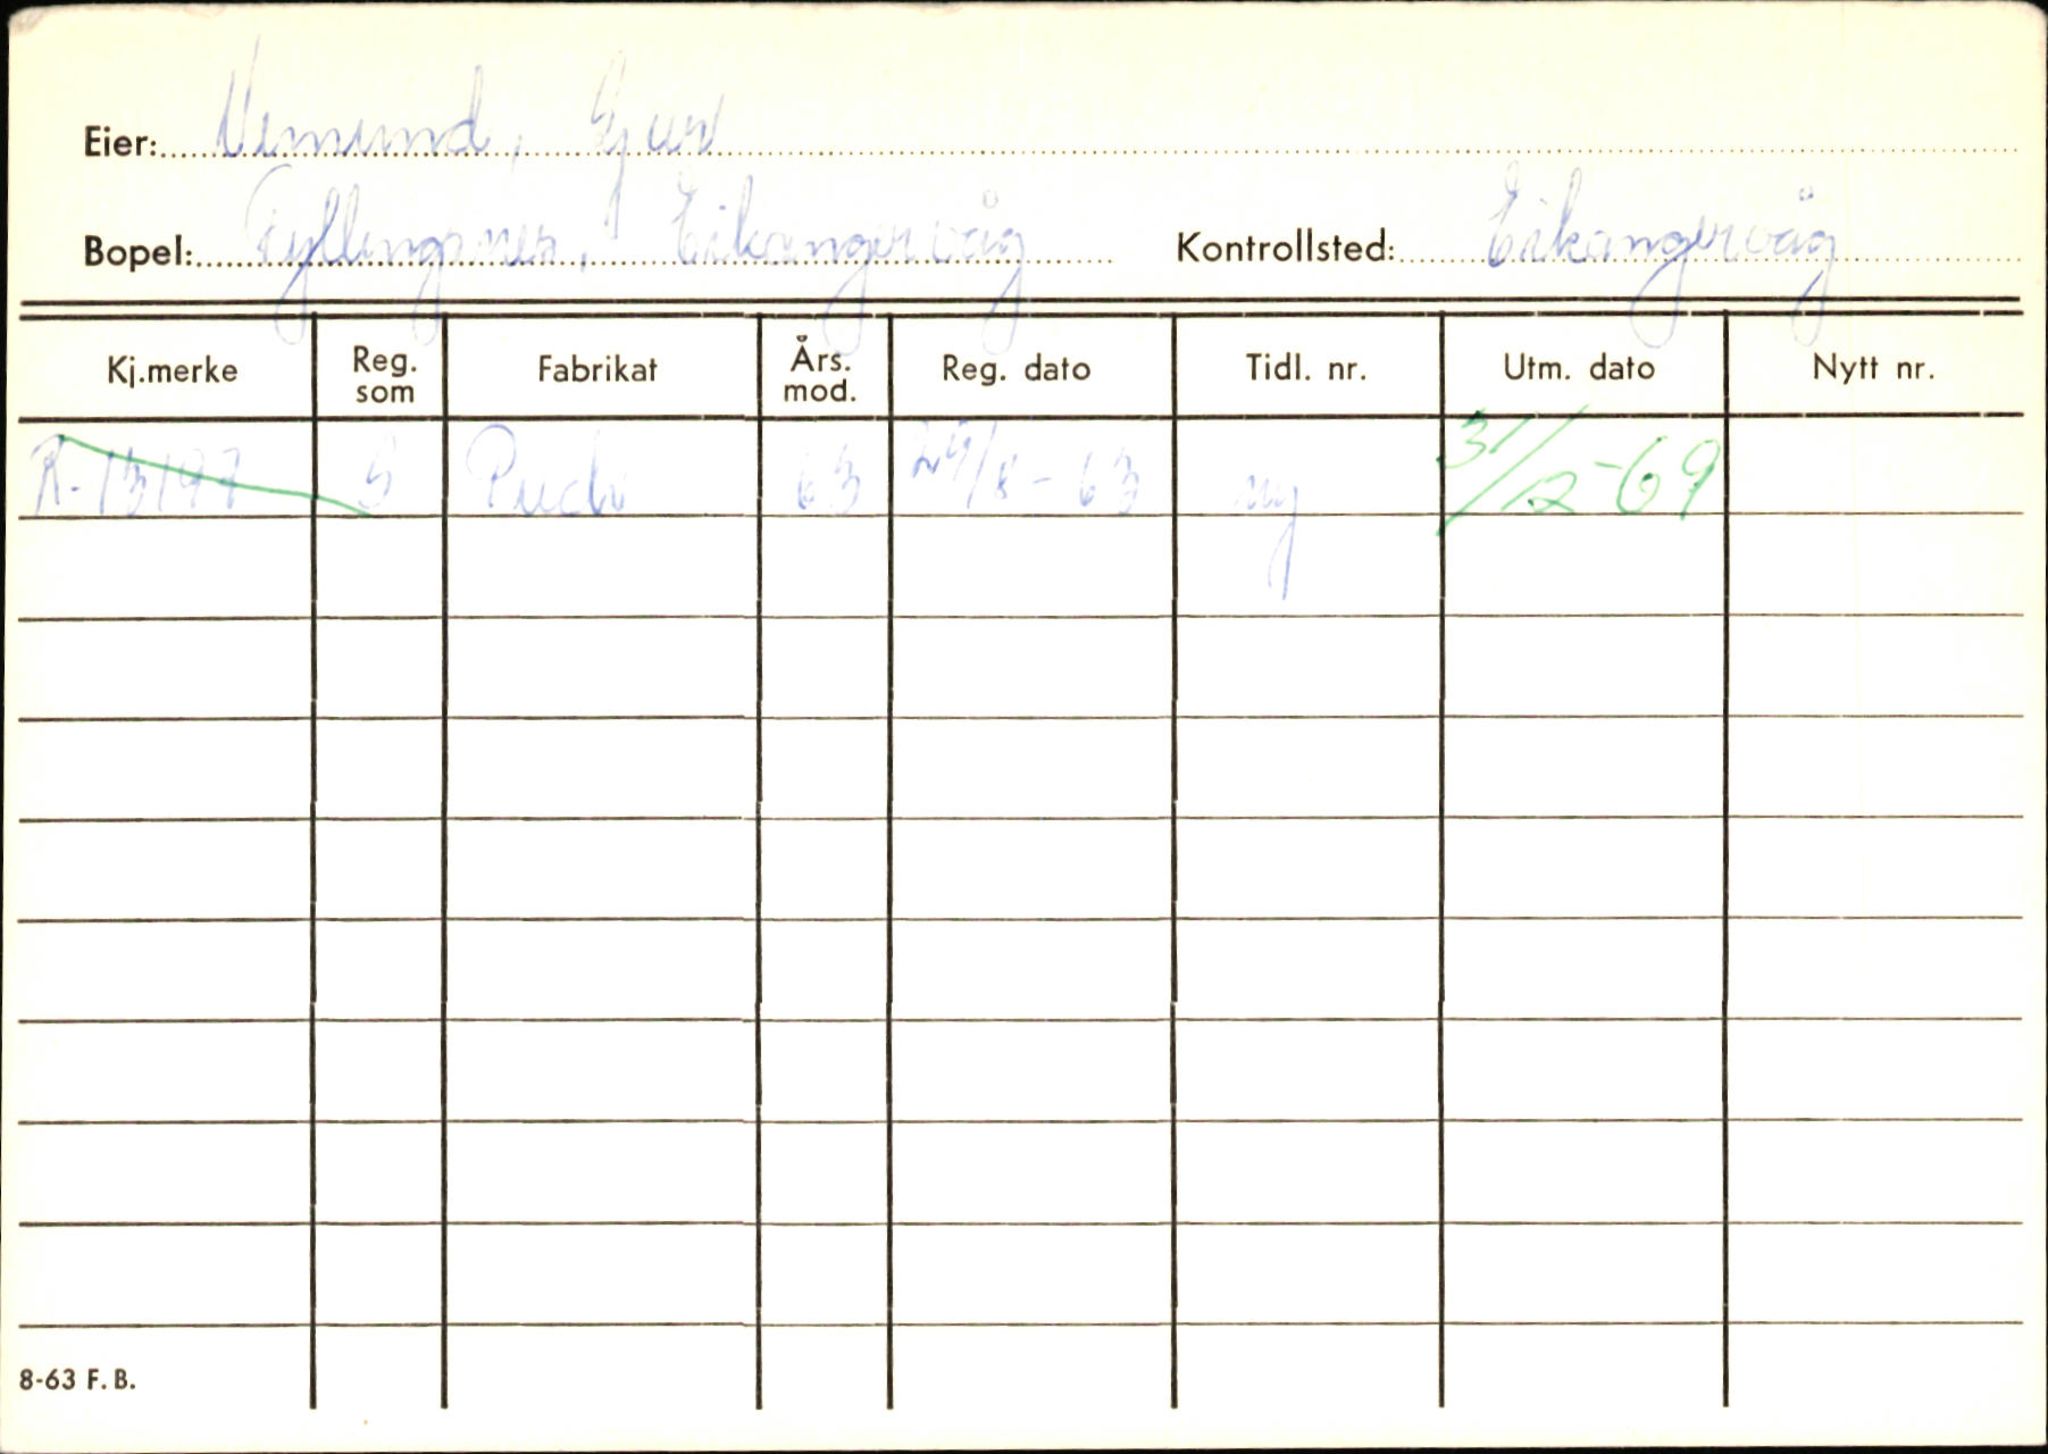 Eier: Vemund, Gjur
Bopel: Fyllingsnes, Eikangervåg Kontrollsted: Eikangervåg
Kj.merke Reg. som Fabrikat Års. mod. Reg. dato Tidl. nr. Utm. dato Nytt nr.
R-13197 S Puch 63 29/8-63 ny 31/12-69
8-63 F. B.